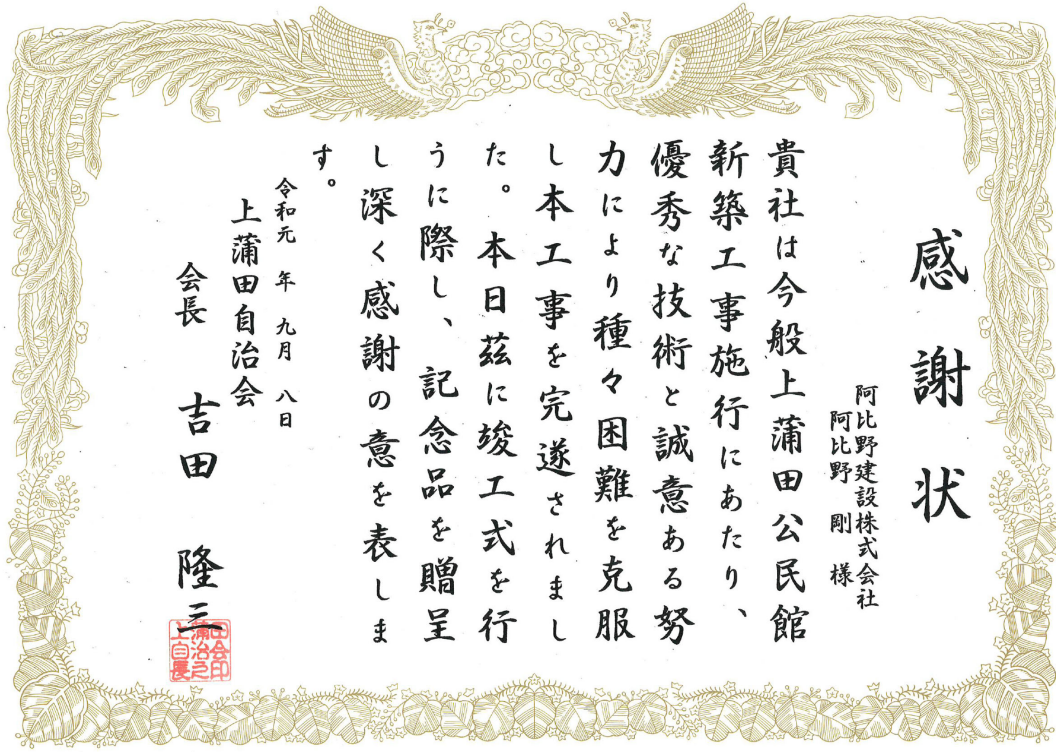 感謝状
阿比野建設株式会社
阿比野 剛 様
貴社は今般上蒲田公民館
新築工事施行にあたり、
優秀な技術と誠意ある努
力により種々困難を克服
し本工事を完遂されまし
た。本日茲に竣工式を行
うに際し、記念品を贈呈
し深く感謝の意を表しま
す。
令和元 年 九月 八日
上蒲田自治会
会長 吉田 隆三
田会印
蒲治之
上自長